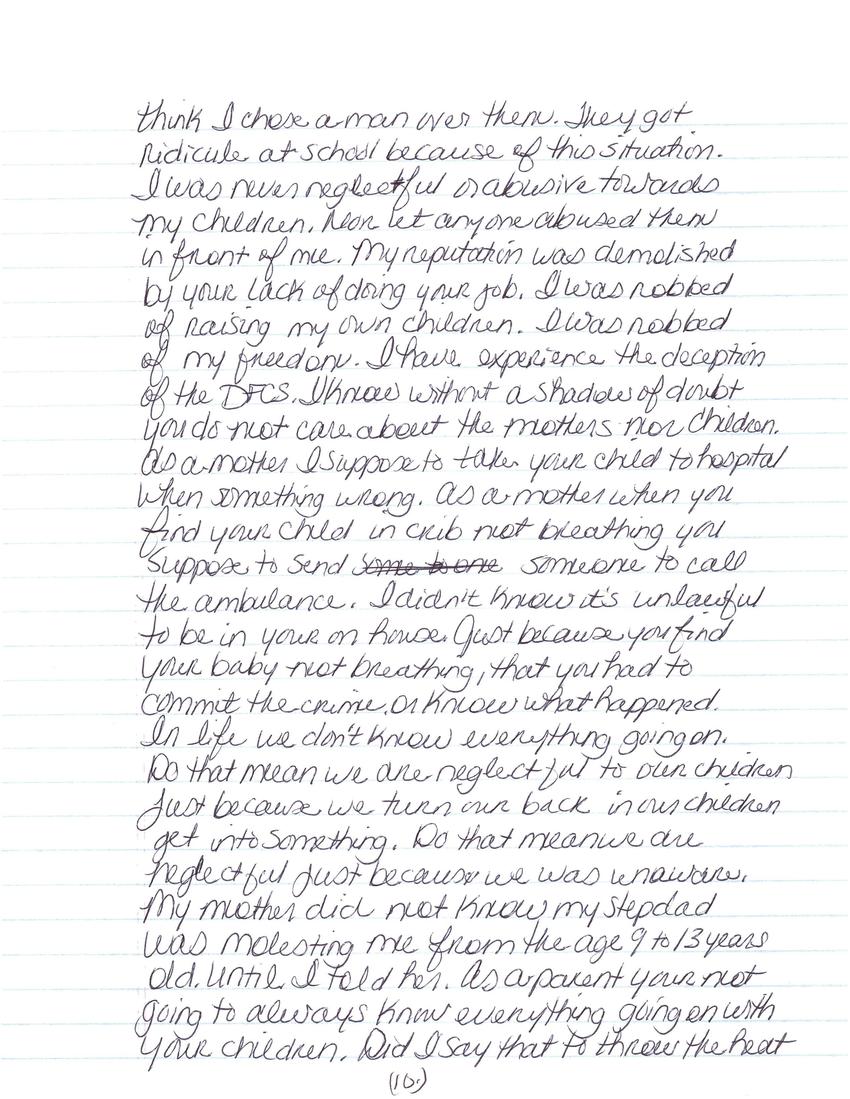 think I chose a man over them. They got
ridicule at school because of this situation.
I was never neglectful or abusive towards
my children. Nor let anyone abused them
in front of me. My reputation was demolished
by your lack of doing your job. I was robbed
of raising my own children. I was robbed
of my freedom. I have experience the deception
of the DFCS. I know without a shadow of doubt
you do not care about the mothers nor children.
As a mother I suppose to take your child to hospital
when something wrong. As a mother when you
find your child in crib not breathing you
suppose to send some to one someone to call
the ambulance. I didn't know it's unlawful
to be in your on house. Just because you find
your baby not breathing, that you had to
commit the crime. Or know what happened.
In life we don't know everything going on.
Do that mean we are neglectful to our children
Just because we turn our back in our children
get into something. Do that mean we are
neglectful just because we was unaware.
My mother did not know my stepdad
was molesting me from the age 9 to 13 years
old. Until I told her. As a parent your not
going to always know everything going on with
your children. Did I say that to throw the heat
(10.)